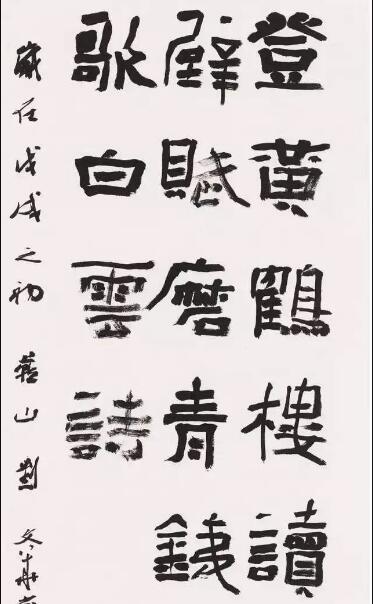 登黃鶴樓讀
壁賦磨青錢
歌白雲詩
歲在戊戌之初 山 劉